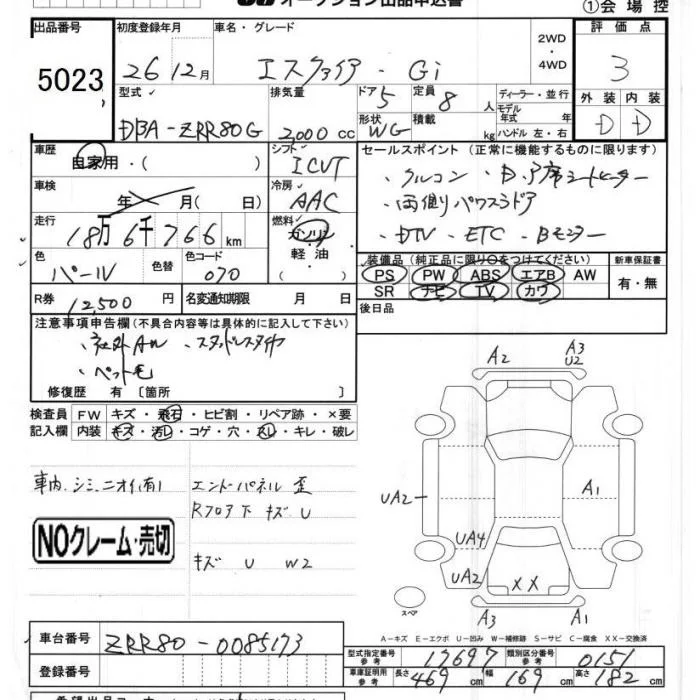 オークション出品申込書 ①会場控
出品番号 5023
初度登録年月 26年12月
車名・グレード エスクァイア・Gi
2WD・4WD
評価点 3
外装 D 内装 D
型式 DBA-ZRR80G
排気量 2,000 cc
ドア 5 形状 WG
定員 8人 積載 kg
ディーラー・並行
モデル年式 年式
ハンドル 左・右
車歴 自家用・( )
シフト ICVT
車検 年 月(日)
冷房 AAC
走行 18万6千766km
燃料 ガソリン 軽油 ( )
色 パール 色替 色コード 070
R券 12,500円 名変通知期限 月 日
セールスポイント (正常に機能するものに限ります)
・クルコン ・D、P席シートヒーター
・両側パワースドア
・DTV ・ETC ・Bモニター
装備品(純正品に限り○をつけてください) 新車保証書
PS PW ABS エアB AW 有・無
SR ナビ TV カワ
後日品
注意事項申告欄(不具合内容等は具体的に記入して下さい)
・社外AW ・スタッドレスタイヤ
・ペット毛
修復歴 有[箇所 ]
検査員 FW キズ・飛石・ヒビ割・リペア跡・×要
記入欄 内装 キズ・汚レ・コゲ・穴・スレ・キレ・破レ
車内、シミ、ニオイ(有) エンドパネル歪
Rフロア下キズU
NOクレーム・売切
キズ U W2
A2 A3 U2
UA2 A1
UA4
UA2 XX
スペア A3 A1
A-キズ E-エクボ U-凹み W-補修跡 S-サビ C-腐食 XX-交換済
車台番号 ZRR80-0085173
登録番号
型式指定番号 参考 17697 類別区分番号 参考 0151
車庫証明用 参考 長さ 469 cm 幅 169 cm 高さ 182 cm